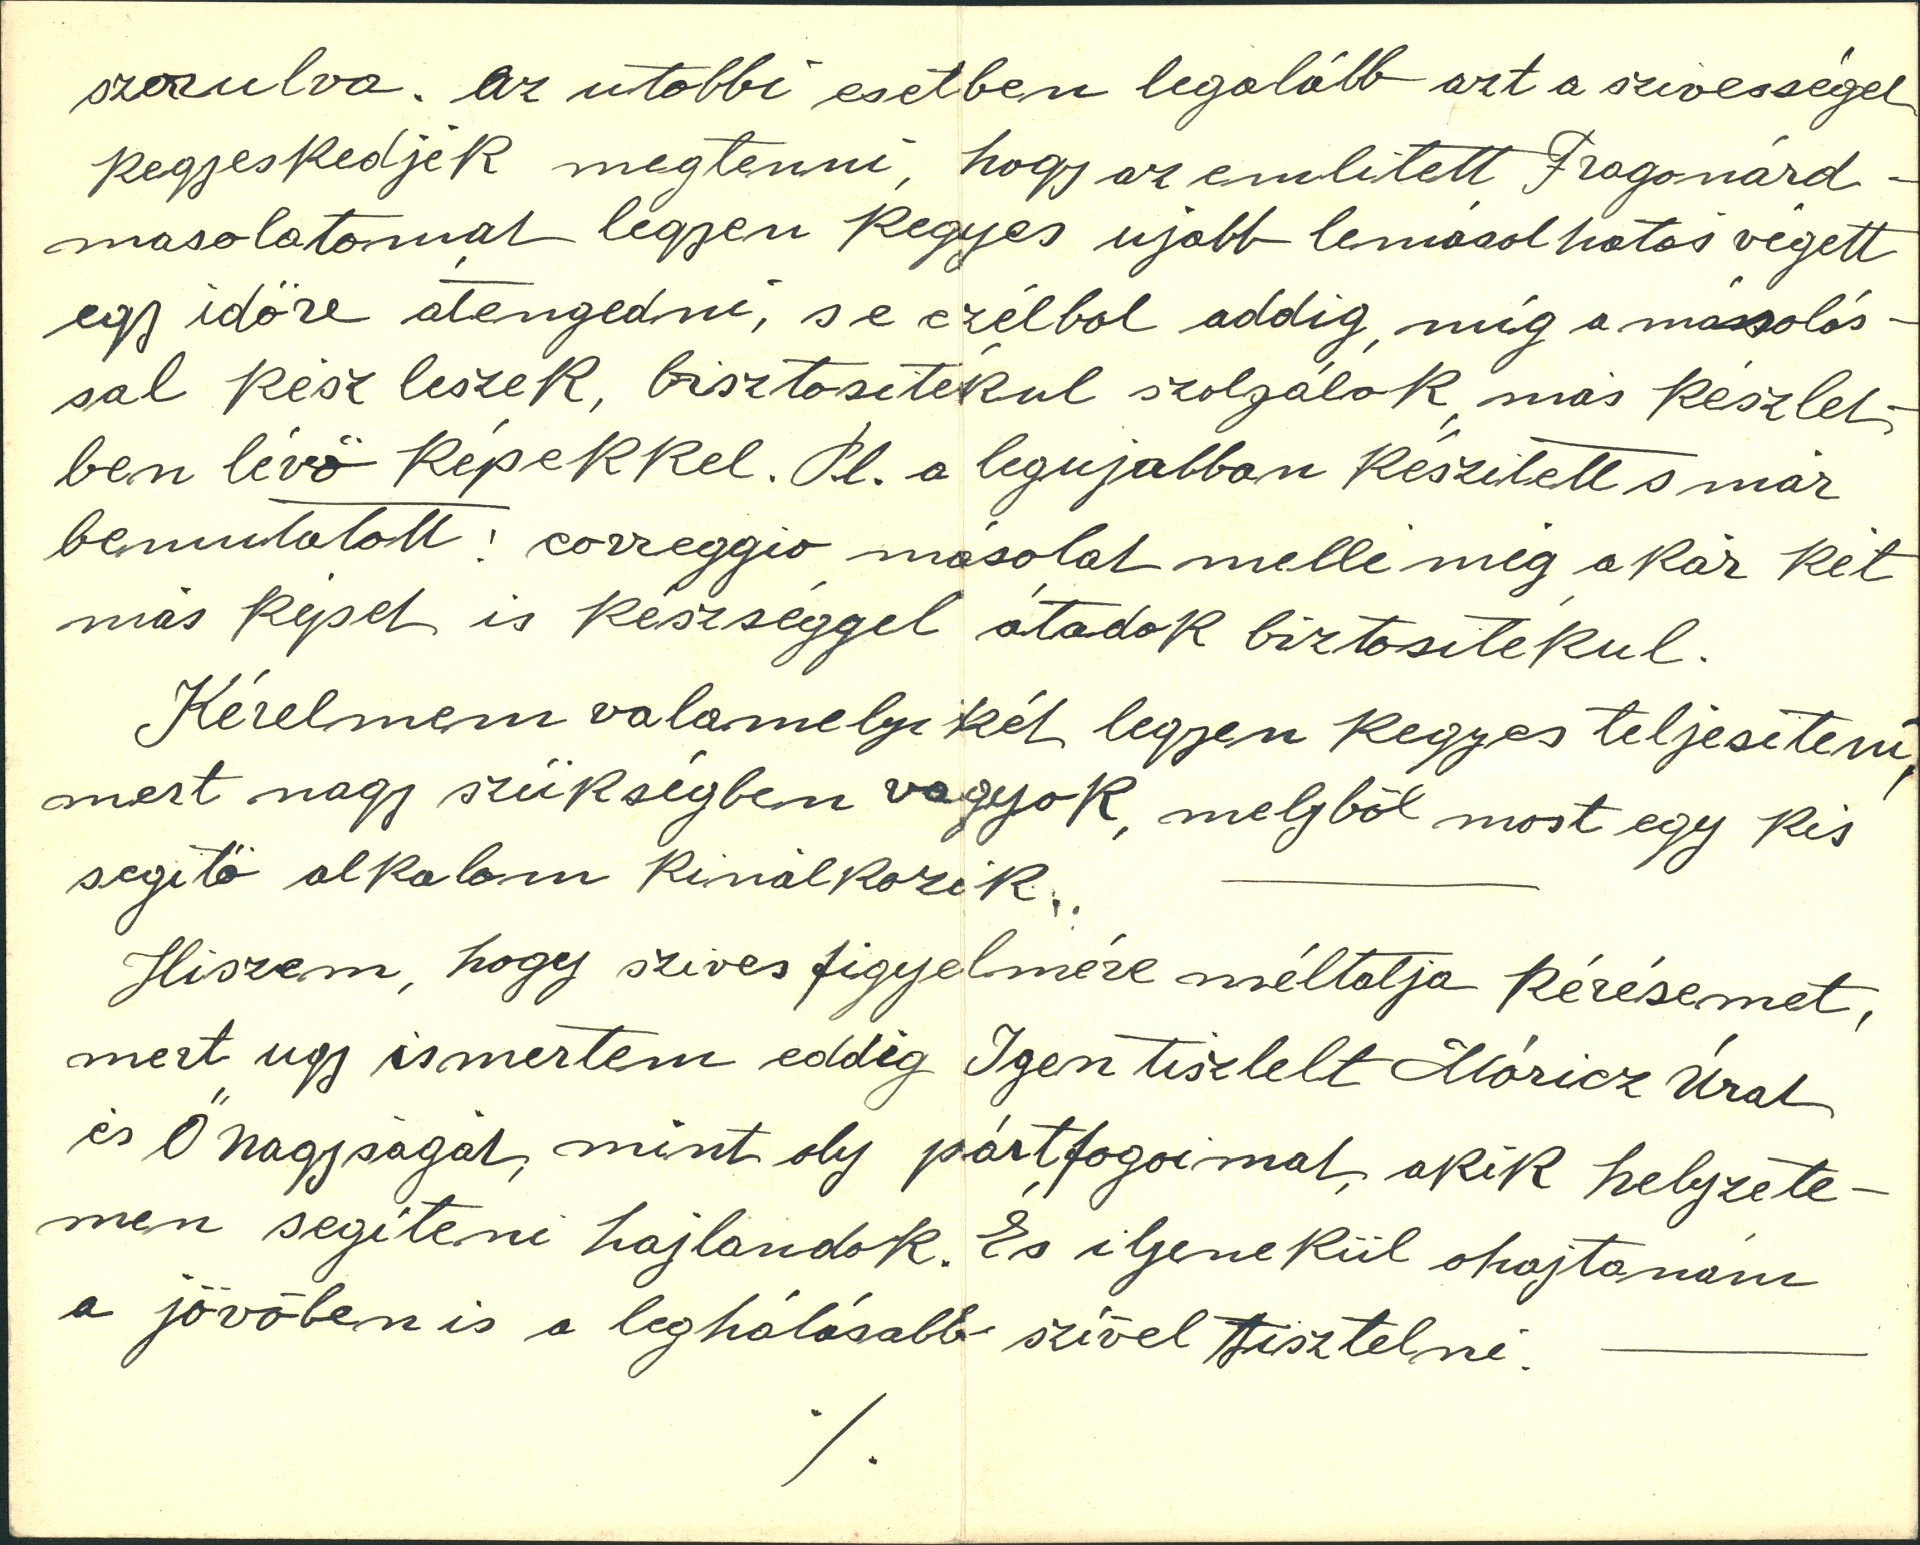 szorulva. Az utobbi esetben legalább azt a szivességet
kegyeskedjék megtenni, hogy az emlitett Fragonárd-
masolatomat legyen kegyes ujabb lemásolhatás végett
egy időre átengedni, s e czélbol addig, mig a másolás-
sal kész leszek, bisztositékul szolgálok más készlet-
ben lévő képekkel. Pl. a legujabban készitett s már
bemutatott: correggio másolat mellé még akár két
más képet is készséggel átadok biztositékul.
Kérelmem valamelyikét legyen kegyes teljesiteni,
mert nagy szükségben vagyok, melyből most egy kis
segitő alkalom kinálkozik.
Hiszem, hogy szives figyelmére méltatja kérésemet,
mert ugy ismertem eddig Igen tisztelt Móricz Úrat
és Ő nagyságát, mint oly pártfogoimat, akik helyzete-
men segíteni hajlandok. És ilyenekül ohajtanám
a jövőben is a leghálásabb szívvel tisztelni.
./.